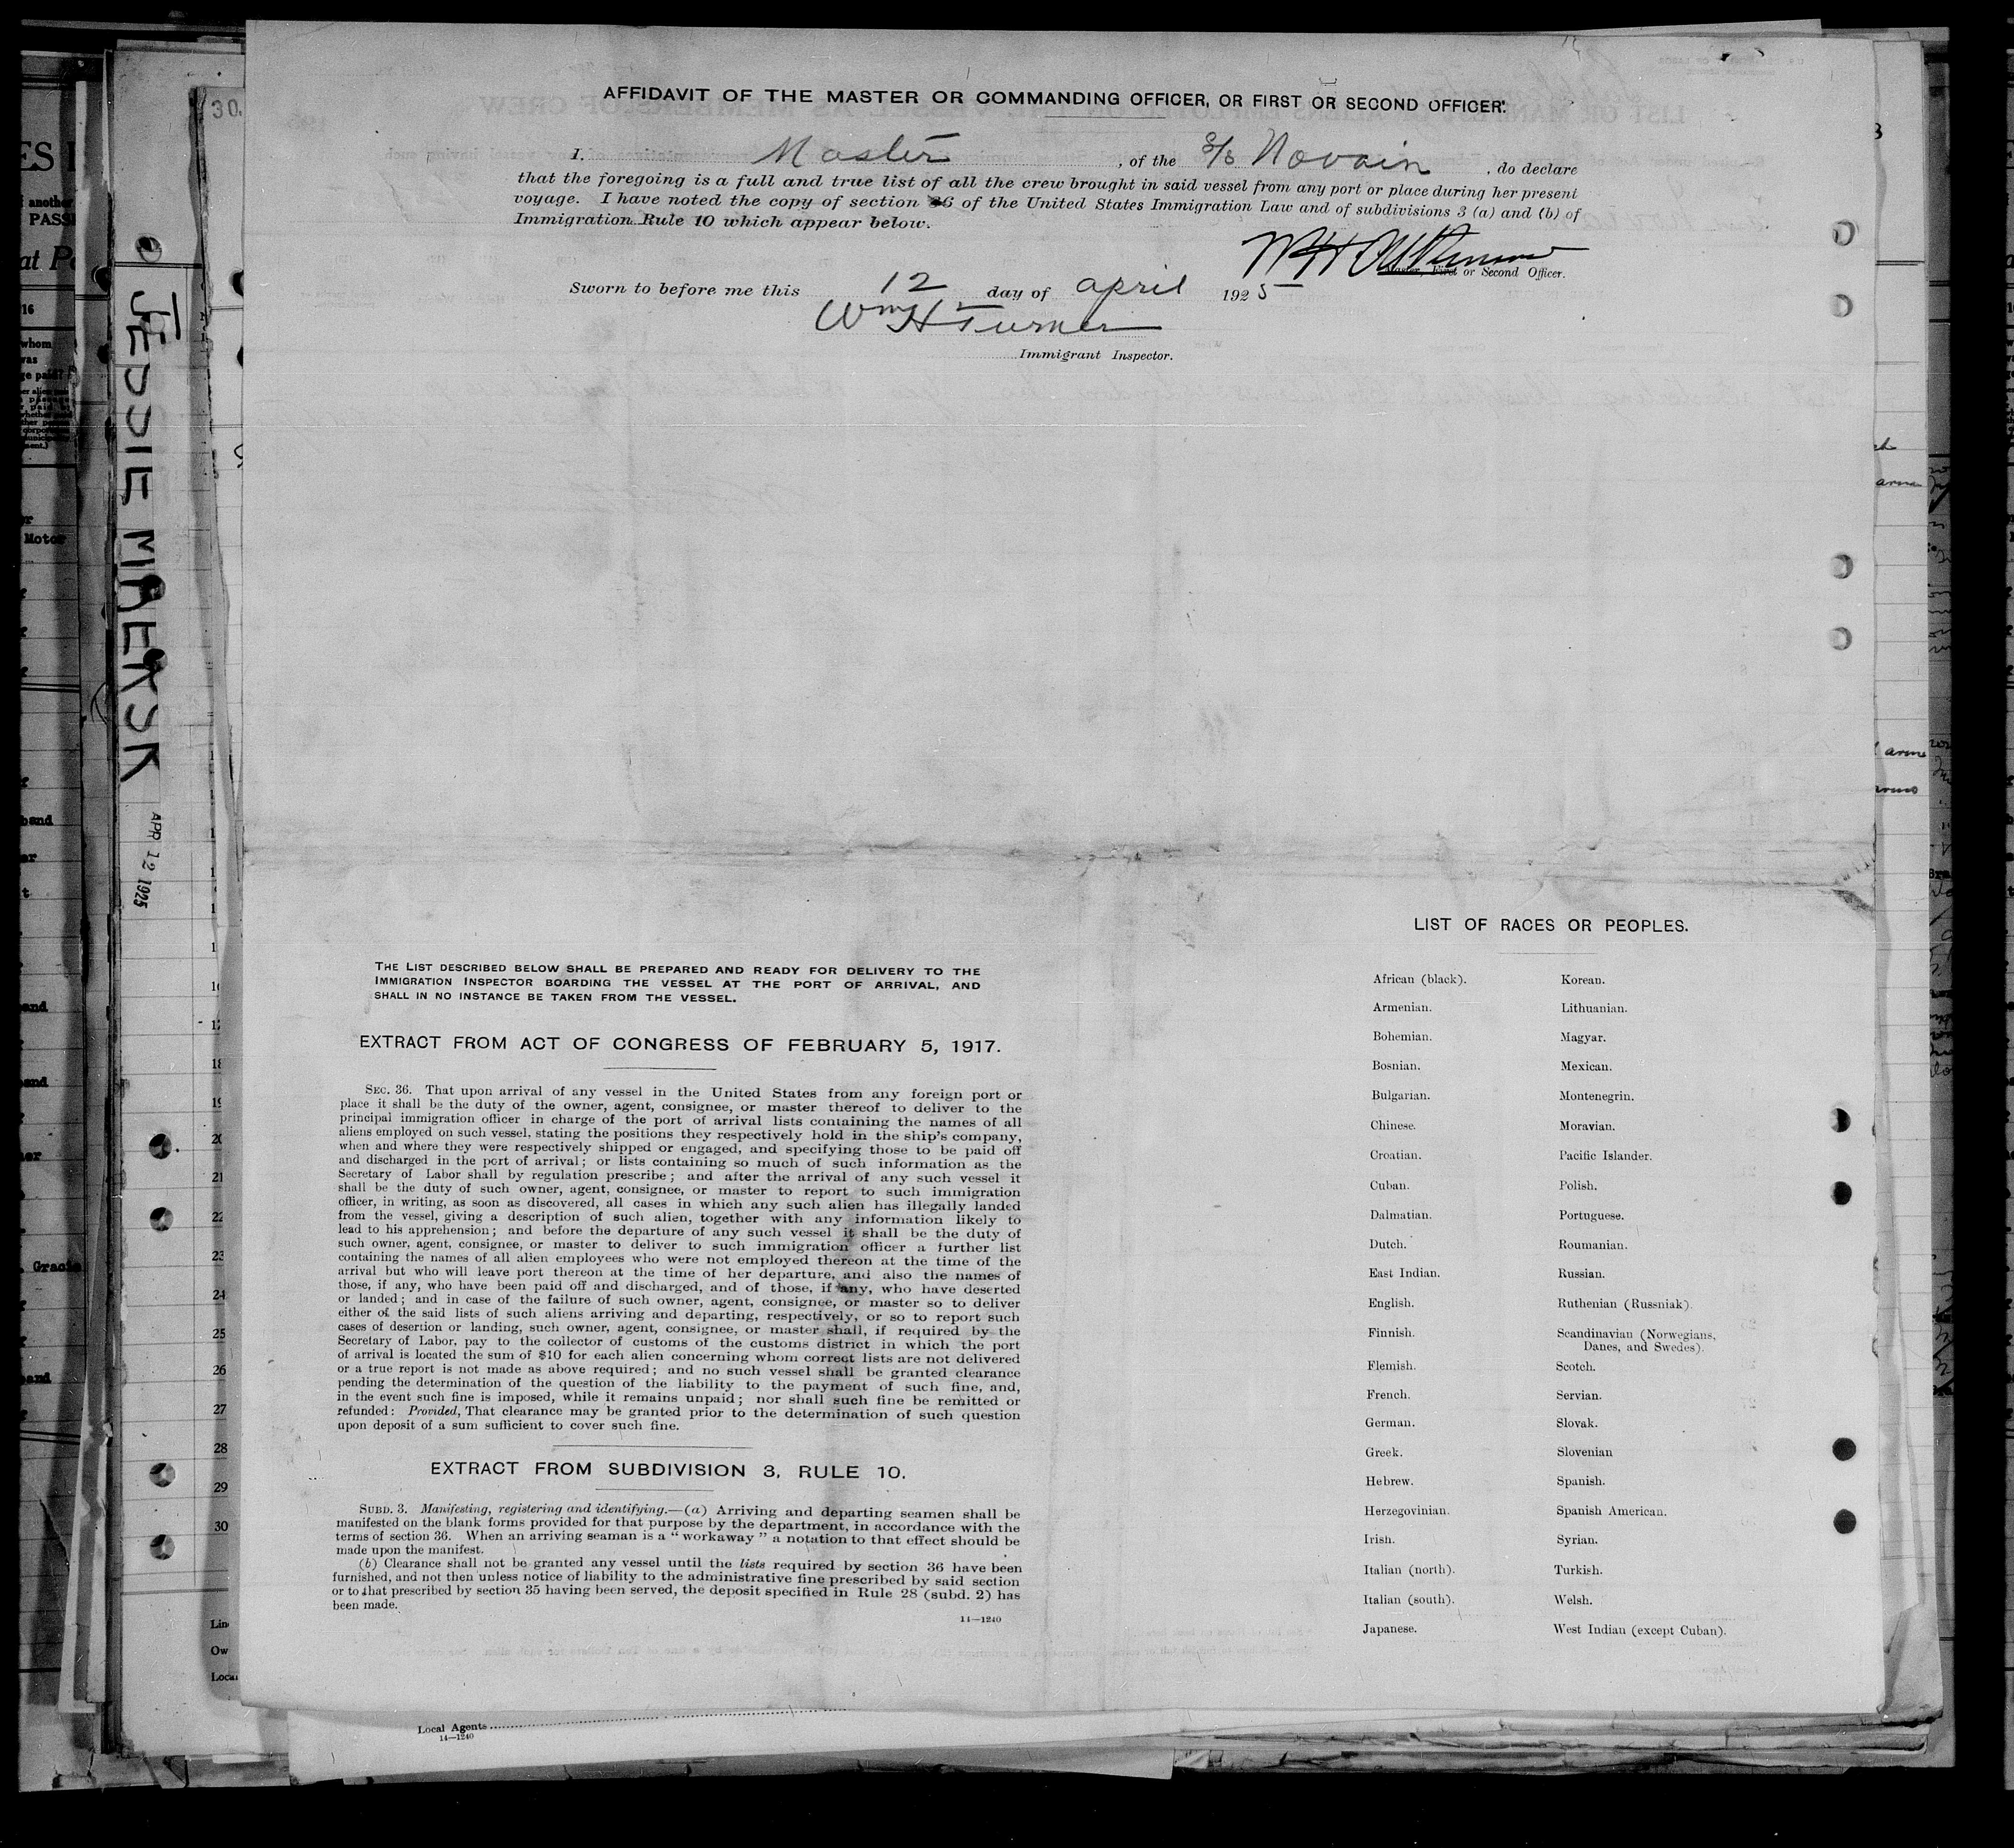 AFFIDAVIT OF THE MASTER OR COMMANDING OFFICER, OR FIRST OR SECOND OFFICER.
I, Master, of the S/S Novain, do declare
that the foregoing is a full and true list of all the crew brought in said vessel from any port or place during her present
voyage. I have noted the copy of section 36 of the United States Immigration Law and of subdivisions 3 (a) and (b) of
Immigration Rule 10 which appear below.
Master, First or Second Officer.
Sworn to before me this 12 day of april 1925
Wm H Turner
Immigrant Inspector.
JESSIE MAERSK
APR 12 1925
THE LIST DESCRIBED BELOW SHALL BE PREPARED AND READY FOR DELIVERY TO THE
IMMIGRATION INSPECTOR BOARDING THE VESSEL AT THE PORT OF ARRIVAL, AND
SHALL IN NO INSTANCE BE TAKEN FROM THE VESSEL.
EXTRACT FROM ACT OF CONGRESS OF FEBRUARY 5, 1917.
SEC. 36. That upon arrival of any vessel in the United States from any foreign port or
place it shall be the duty of the owner, agent, consignee, or master thereof to deliver to the
principal immigration officer in charge of the port of arrival lists containing the names of all
aliens employed on such vessel, stating the positions they respectively hold in the ship's company,
when and where they were respectively shipped or engaged, and specifying those to be paid off
and discharged in the port of arrival; or lists containing so much of such information as the
Secretary of Labor shall by regulation prescribe; and after the arrival of any such vessel it
shall be the duty of such owner, agent, consignee, or master to report to such immigration
officer, in writing, as soon as discovered, all cases in which any such alien has illegally landed
from the vessel, giving a description of such alien, together with any information likely to
lead to his apprehension; and before the departure of any such vessel it shall be the duty of
such owner, agent, consignee, or master to deliver to such immigration officer a further list
containing the names of all alien employees who were not employed thereon at the time of the
arrival but who will leave port thereon at the time of her departure, and also the names of
those, if any, who have been paid off and discharged, and of those, if any, who have deserted
or landed; and in case of the failure of such owner, agent, consignee, or master so to deliver
either of the said lists of such aliens arriving and departing, respectively, or so to report such
cases of desertion or landing, such owner, agent, consignee, or master shall, if required by the
Secretary of Labor, pay to the collector of customs of the customs district in which the port
of arrival is located the sum of $10 for each alien concerning whom correct lists are not delivered
or a true report is not made as above required; and no such vessel shall be granted clearance
pending the determination of the question of the liability to the payment of such fine, and,
in the event such fine is imposed, while it remains unpaid; nor shall such fine be remitted or
refunded: Provided, That clearance may be granted prior to the determination of such question
upon deposit of a sum sufficient to cover such fine.
EXTRACT FROM SUBDIVISION 3, RULE 10.
SUBD. 3. Manifesting, registering and identifying.—(a) Arriving and departing seamen shall be
manifested on the blank forms provided for that purpose by the department, in accordance with the
terms of section 36. When an arriving seaman is a "workaway" a notation to that effect should be
made upon the manifest.
(b) Clearance shall not be granted any vessel until the lists required by section 36 have been
furnished, and not then unless notice of liability to the administrative fine prescribed by said section
or to that prescribed by section 35 having been served, the deposit specified in Rule 28 (subd. 2) has
been made.
14—1240
LIST OF RACES OR PEOPLES.
African (black).
Armenian.
Bohemian.
Bosnian.
Bulgarian.
Chinese.
Croatian.
Cuban.
Dalmatian.
Dutch.
East Indian.
English.
Finnish.
Flemish.
French.
German.
Greek.
Hebrew.
Herzegovinian.
Irish.
Italian (north).
Italian (south).
Japanese.
Korean.
Lithuanian.
Magyar.
Mexican.
Montenegrin.
Moravian.
Pacific Islander.
Polish.
Portuguese.
Roumanian.
Russian.
Ruthenian (Russniak).
Scandinavian (Norwegians,
Danes, and Swedes).
Scotch.
Servian.
Slovak.
Slovenian
Spanish.
Spanish American.
Syrian.
Turkish.
Welsh.
West Indian (except Cuban).
Local Agents
14—1240